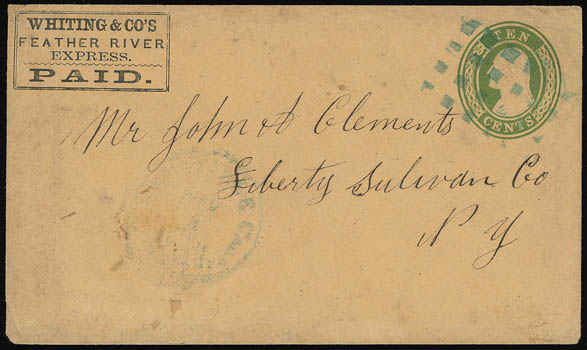 WHITING & CO'S
FEATHER RIVER
EXPRESS.
PAID.
TEN
CENTS
Mr John A Clements
Liberty Sulivan Co
N Y